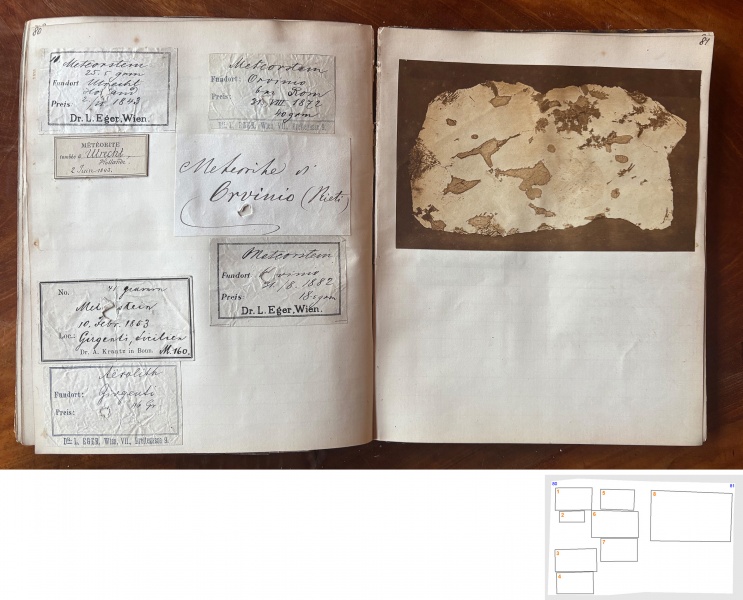 80
Meteorstein
25.5 gram
Fundort Utrecht
Holland
Preis 2/6 1843
Dr. L. Eger, Wien.
MÉTÉORITE
tombée à Utrecht.
Hollande
2 Juin 1843.
No. 41 gramm
Meteorstein
10. Febr. 1853
Loc.: Girgenti, Sicilien
Dr. A. Krantz in Bonn. M.160.
Aerolith
Fundort: Girgenti
Preis: Gr
Dr. L. EGER, Wien, VII., Breitegasse 9.
Meteorstein
Fundort: Orvinio
bei Rom
Preis: 31. VIII 1872
40 gam
Dr. L. EGER, Wien, VII., Breitegasse 9.
Meteorite di
Orvinio (Rieti)
Meteorstein
Fundort Orvinio
31/8. 1882
Preis 18 gam
Dr. L. Eger, Wien.
81
80
81
1
2
3
4
5
6
7
8